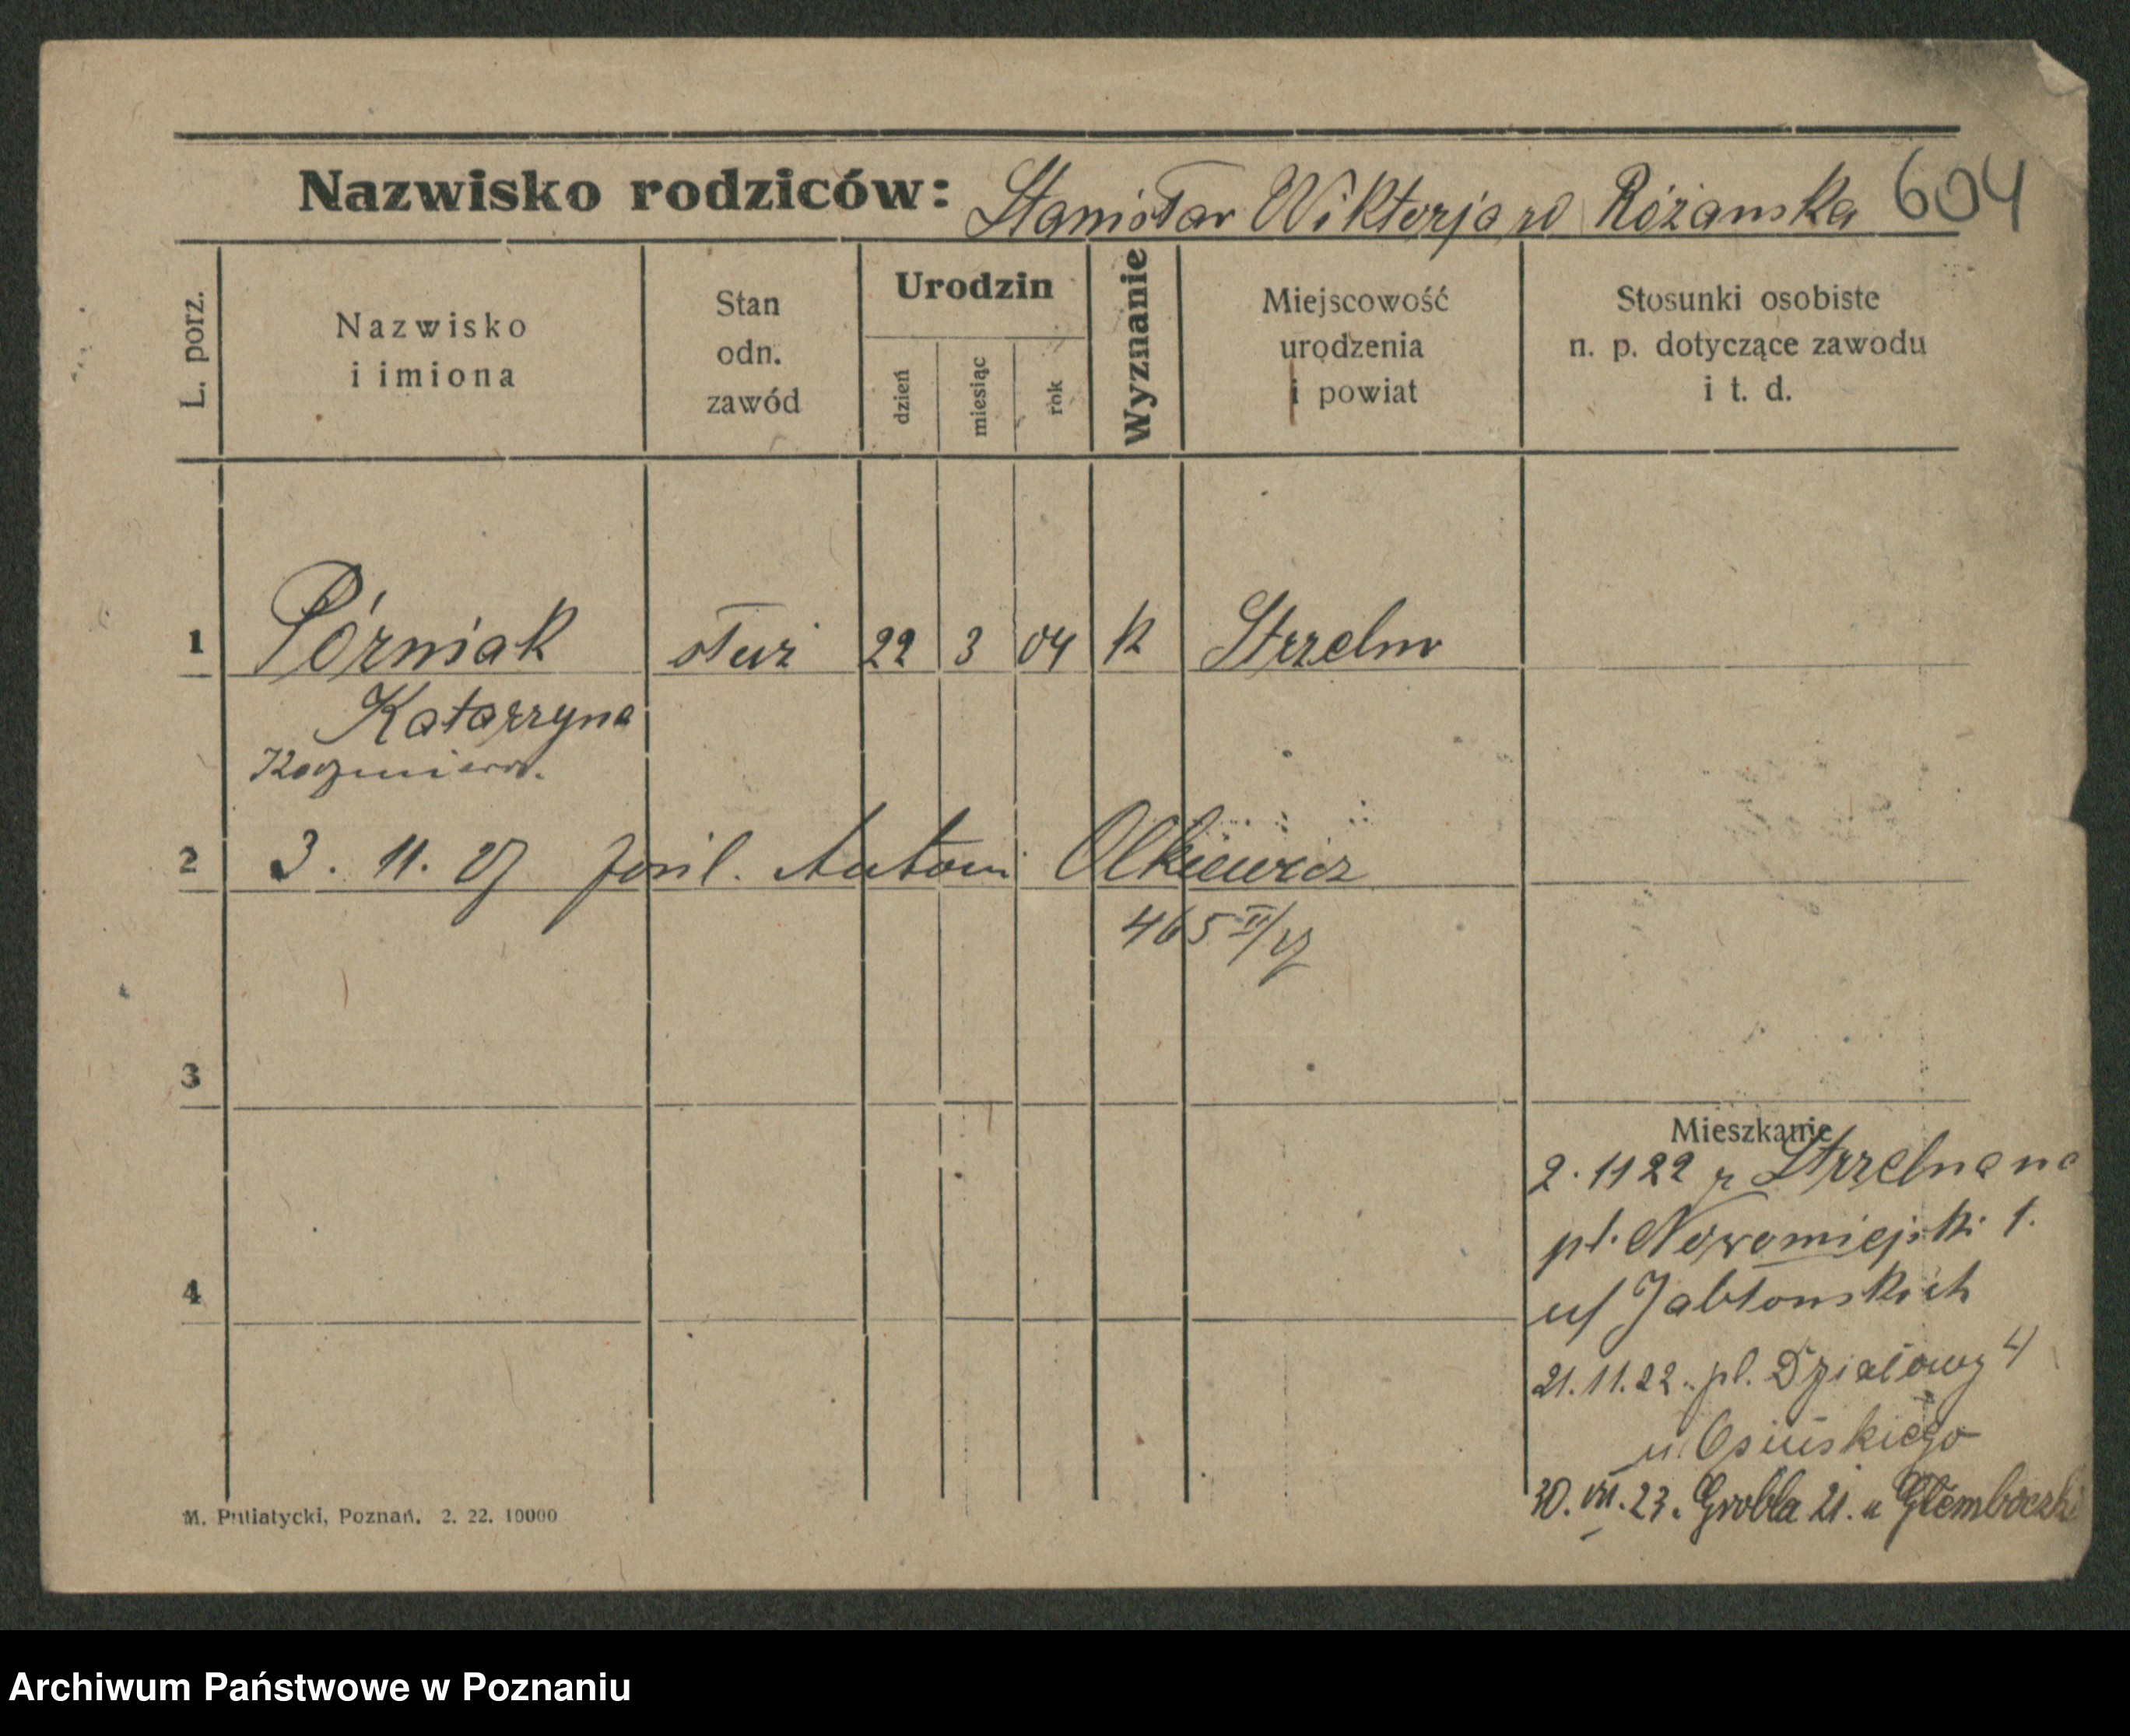 Nazwisko rodziców: Stanisław Wiktorja zd Różanska 604
L. porz.
Nazwisko
i imiona
Stan
odn.
zawód
Urodzin
dzień
miesiąc
rok
Wyznanie
Miejscowość
urodzenia
i powiat
Stosunki osobiste
n. p. dotyczące zawodu
i t. d.
1 Pórniak służ 22 3 04 k Strzelno
Katarzyna
2 3. 11. 27 Antoni Olkiewicz
465 II/27
3
Mieszkanie
2. 11 22 z Strzelna na
pl. Nowomiejski 1.
u/ Jabłonskich
4
21. 11. 22. pl. Działowy 4
u. Osińskiego
30. VII. 23. Grobla 21. u Głembocki
M. Putiatycki, Poznań. 2. 22. 10000
Archiwum Państwowe w Poznaniu